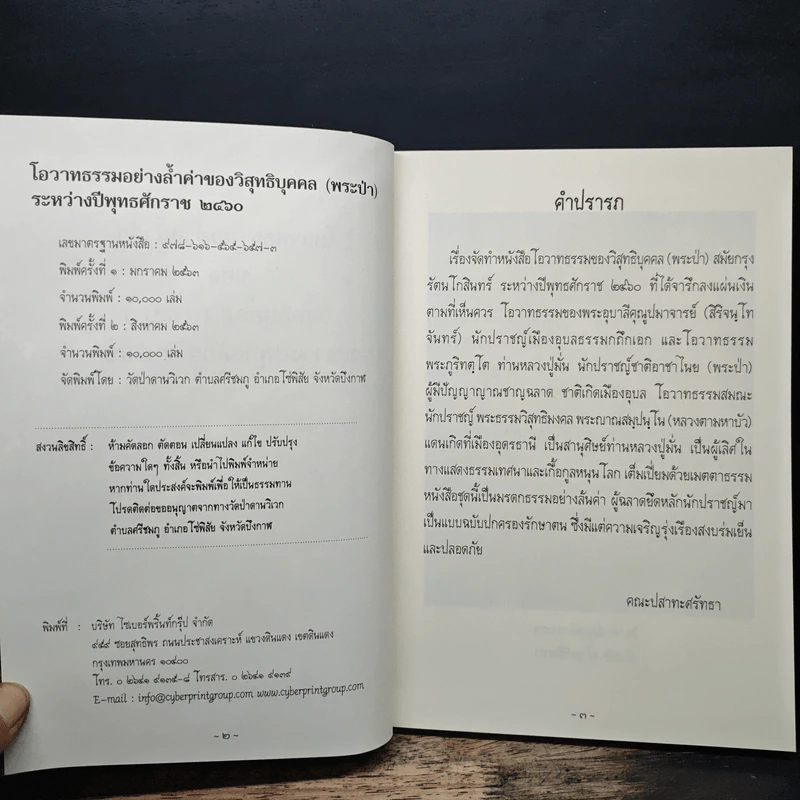 โอวาทธรรมอย่างล้ำค่าของวิสุทธิบุคคล (พระป่า)
ระหว่างปีพุทธศักราช ๒๔๖๐
เลขมาตรฐานหนังสือ : ๙๗๘-๖๑๖-๕๖๕-๖๔๗-๓
พิมพ์ครั้งที่ ๑ : มกราคม ๒๕๖๓
จำนวนพิมพ์ : ๑๐,๐๐๐ เล่ม
พิมพ์ครั้งที่ ๒ : สิงหาคม ๒๕๖๓
จำนวนพิมพ์ : ๑๐,๐๐๐ เล่ม
จัดพิมพ์โดย : วัดป่าดานวิเวก ตำบลศรีชมภู อำเภอโซ่พิสัย จังหวัดบึงกาฬ
สงวนลิขสิทธิ์ : ห้ามคัดลอก ตัดตอน เปลี่ยนแปลง แก้ไข ปรับปรุง
ข้อความใดๆ ทั้งสิ้น หรือนำไปพิมพ์จำหน่าย
หากท่านใดประสงค์จะพิมพ์เพื่อให้เป็นธรรมทาน
โปรดติดต่อขออนุญาตจากทางวัดป่าดานวิเวก
ตำบลศรีชมภู อำเภอโซ่พิสัย จังหวัดบึงกาฬ
พิมพ์ที่ : บริษัท ไซเบอร์พริ้นท์กรุ๊ป จำกัด
๙๕๙ ซอยสุทธิพร ถนนประชาสงเคราะห์ แขวงดินแดง เขตดินแดง
กรุงเทพมหานคร ๑๐๔๐๐
โทร. ๐ ๒๖๔๑ ๙๑๓๕-๘ โทรสาร. ๐ ๒๖๔๑ ๙๑๓๙
E-mail : info@cyberprintgroup.com www.cyberprintgroup.com
- ๒ -
คำปรารภ
เรื่องจัดทำหนังสือโอวาทธรรมของวิสุทธิบุคคล (พระป่า) สมัยกรุง
รัตนโกสินทร์ ระหว่างปีพุทธศักราช ๒๔๖๐ ที่ได้จารึกลงแผ่นเงิน
ตามที่เห็นควร โอวาทธรรมของพระอุบาลีคุณูปมาจารย์ (สิริจนฺโท
จันทร์) นักปราชญ์เมืองอุบลธรรมกถึกเอก และโอวาทธรรม
พระภูริทตฺโต ท่านหลวงปู่มั่น นักปราชญ์ชาติอาชาไนย (พระป่า)
ผู้มีปัญญาญาณชาญฉลาด ชาติเกิดเมืองอุบล โอวาทธรรมสมณะ
นักปราชญ์ พระธรรมวิสุทธิมงคล พระญาณสมฺปนฺโน (หลวงตามหาบัว)
แดนเกิดที่เมืองอุดรธานี เป็นสานุศิษย์ท่านหลวงปู่มั่น เป็นผู้เลิศใน
ทางแสดงธรรมเทศนาและเกื้อกูลหนุนโลก เต็มเปี่ยมด้วยเมตตาธรรม
หนังสือชุดนี้เป็นมรดกธรรมอย่างล้นค่า ผู้ฉลาดยึดหลักนักปราชญ์มา
เป็นแบบฉบับปกครองรักษาตน ซึ่งมีแต่ความเจริญรุ่งเรืองสงบร่มเย็น
และปลอดภัย
คณะปสาทะศรัทธา
- ๓ -